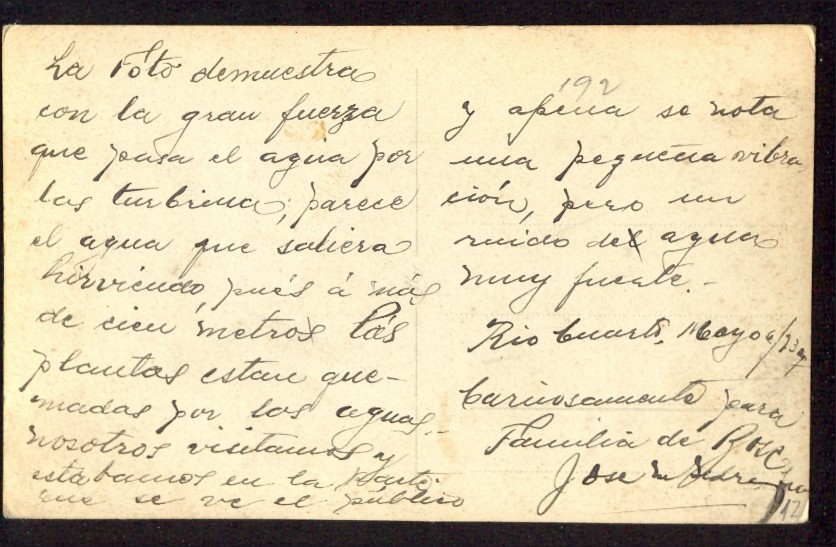 La Fóto demuestra
con la gran fuerza
que pasa el agua por
las turbinas, parece
el agua que saliera
hirviendo, pués á más
de cien metros las
plantas estan que-
madas por las aguas.
nosotros visitamos y
estabamos en la parte
que se ve el público
192
y apena se nota
una pequeña vibra
ción, pero un
ruido del agua
muy fuerte.-
Rio Cuarto, Mayo 6/23
Cariñosamente para
Familia de
Jose
12